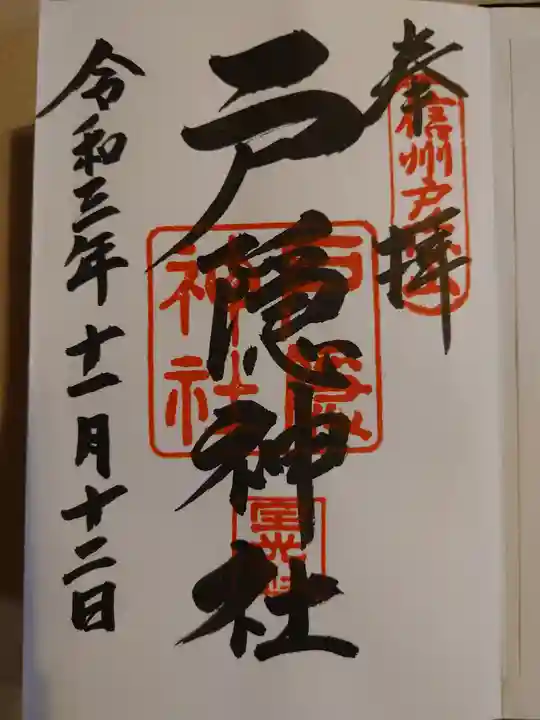 奉拝
信州戸隠山
戸隠神社
戸隠
神社
宝光社
令和三年十一月十二日